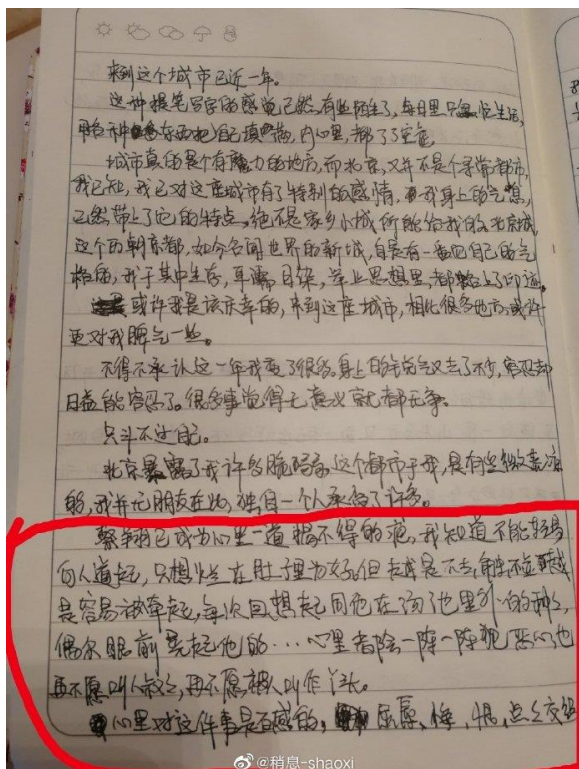 来到这个城市已近一年。
这种提笔写字的感觉已然有些陌生了,每日里只忙生活,
用各种东西把自己填满,内心里,都了了空虚。
城市真的是个有魔力的地方,而北京,又并不是个寻常都市,
我已知,我已对这座城市有了特别的感情,而我身上的气息,
已然带上了它的特点,绝不是家乡小城所能给我的。北京城,
这个历朝京都,如今名闻世界的新城,自是有一番自己的气
格的,我于其中生存,耳濡目染,举止思想里,都烙上了印迹。
或许我是该庆幸的,来到这座城市,相比很多地方,或许
更对我脾气一些。
不得不承认这一年我变了很多。身上的气又去了不少,容忍却
日益能容忍了。很多事觉得无意义就都无争。
只斗不过自己。
北京暴露了我许多脆弱,这个都市于我,是有些微凄凉
的,我并无朋友在此,独自一个人承受了许多。
蔡翔已成为心里一道揭不得的疤,我知道不能轻易
向人道起,只想烂在肚子里为好。但越是不去触碰越
是容易被牵起,每次回想起同他在酒池里外的种种,
偶尔眼前晃起他的…心里都会一阵一阵犯恶心,也
再不愿叫人叔叔,再不愿被人叫作丫头。
心里对这件事是百感的,屈辱、悔、恨,点点交织
@稍息-shaoxi